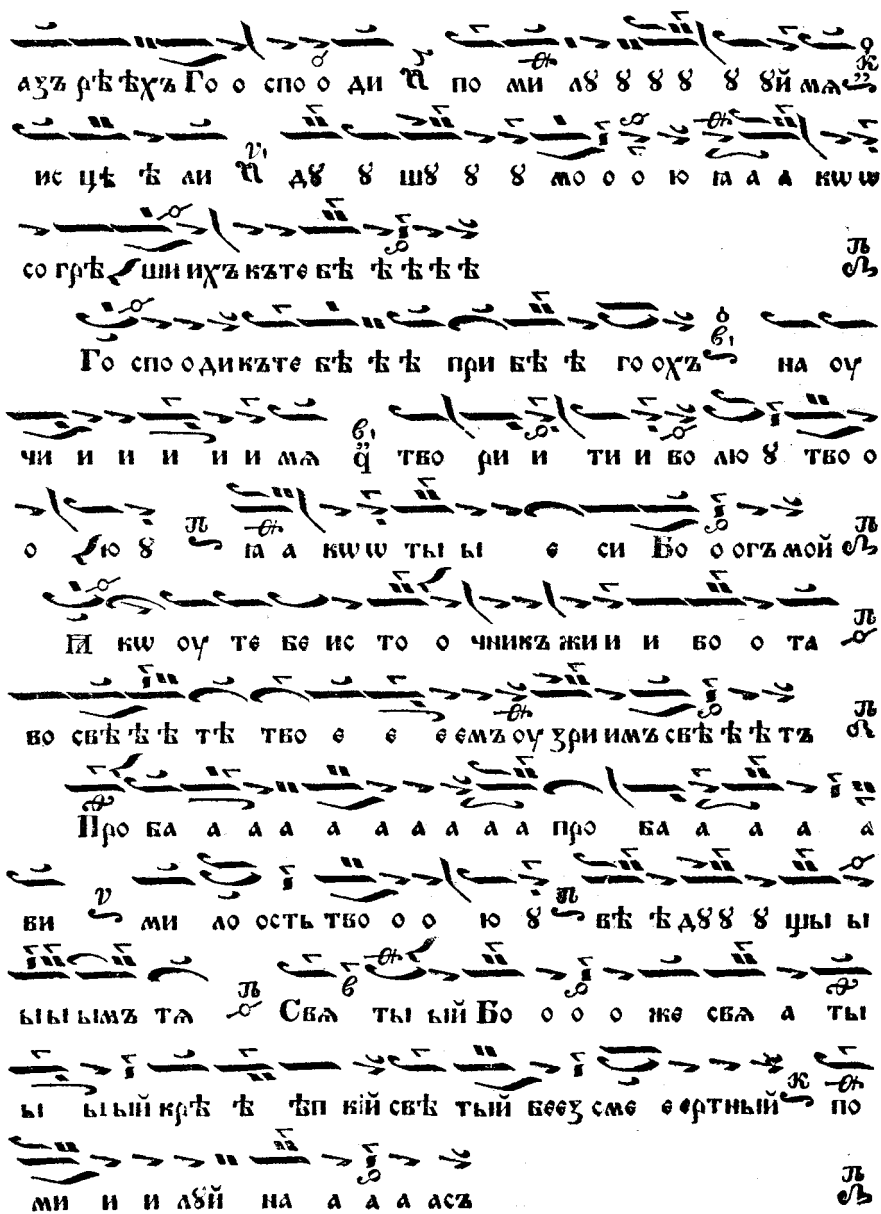 азъ рѣ ѣхъ Го о спо о ди по ми лꙋ ꙋ ꙋ ꙋ ꙋ ꙋй мѧ
ис цѣ ѣ ли дꙋ ꙋ шꙋ ꙋ ꙋ мо о о ю ꙗ а а кѡ ѡ
со грѣ ши ихъ къ те бѣ ѣ ѣ ѣ ѣ
Го спо о ди къ те бѣ ѣ ѣ при бѣ ѣ го охъ на оу
чи и и и и и мѧ тво ри и ти и во лю ꙋ тво о
о ю ꙋ ꙗ а кѡ ѡ ты ы е си Бо о огъ мой
Ꙗ кѡ оу те бе ис то о чникъ жи и и во о та
во свѣ ѣ ѣ тѣ тво е е е емъ оу ꙁри имъ свѣ ѣ ѣ тъ
Про ба а а а а а а а а про ба а а а а
ви ми ло ость тво о о ю ꙋ вѣ ѣ дꙋ ꙋ ꙋ щы ы
ы ы ымъ тѧ Свѧ ты ый Бо о о о же свѧ а ты
ы ы ый крѣ ѣ ѣп кій свѣ тый бееꙁ сме е ертный по
ми и и лꙋй на а а а асъ